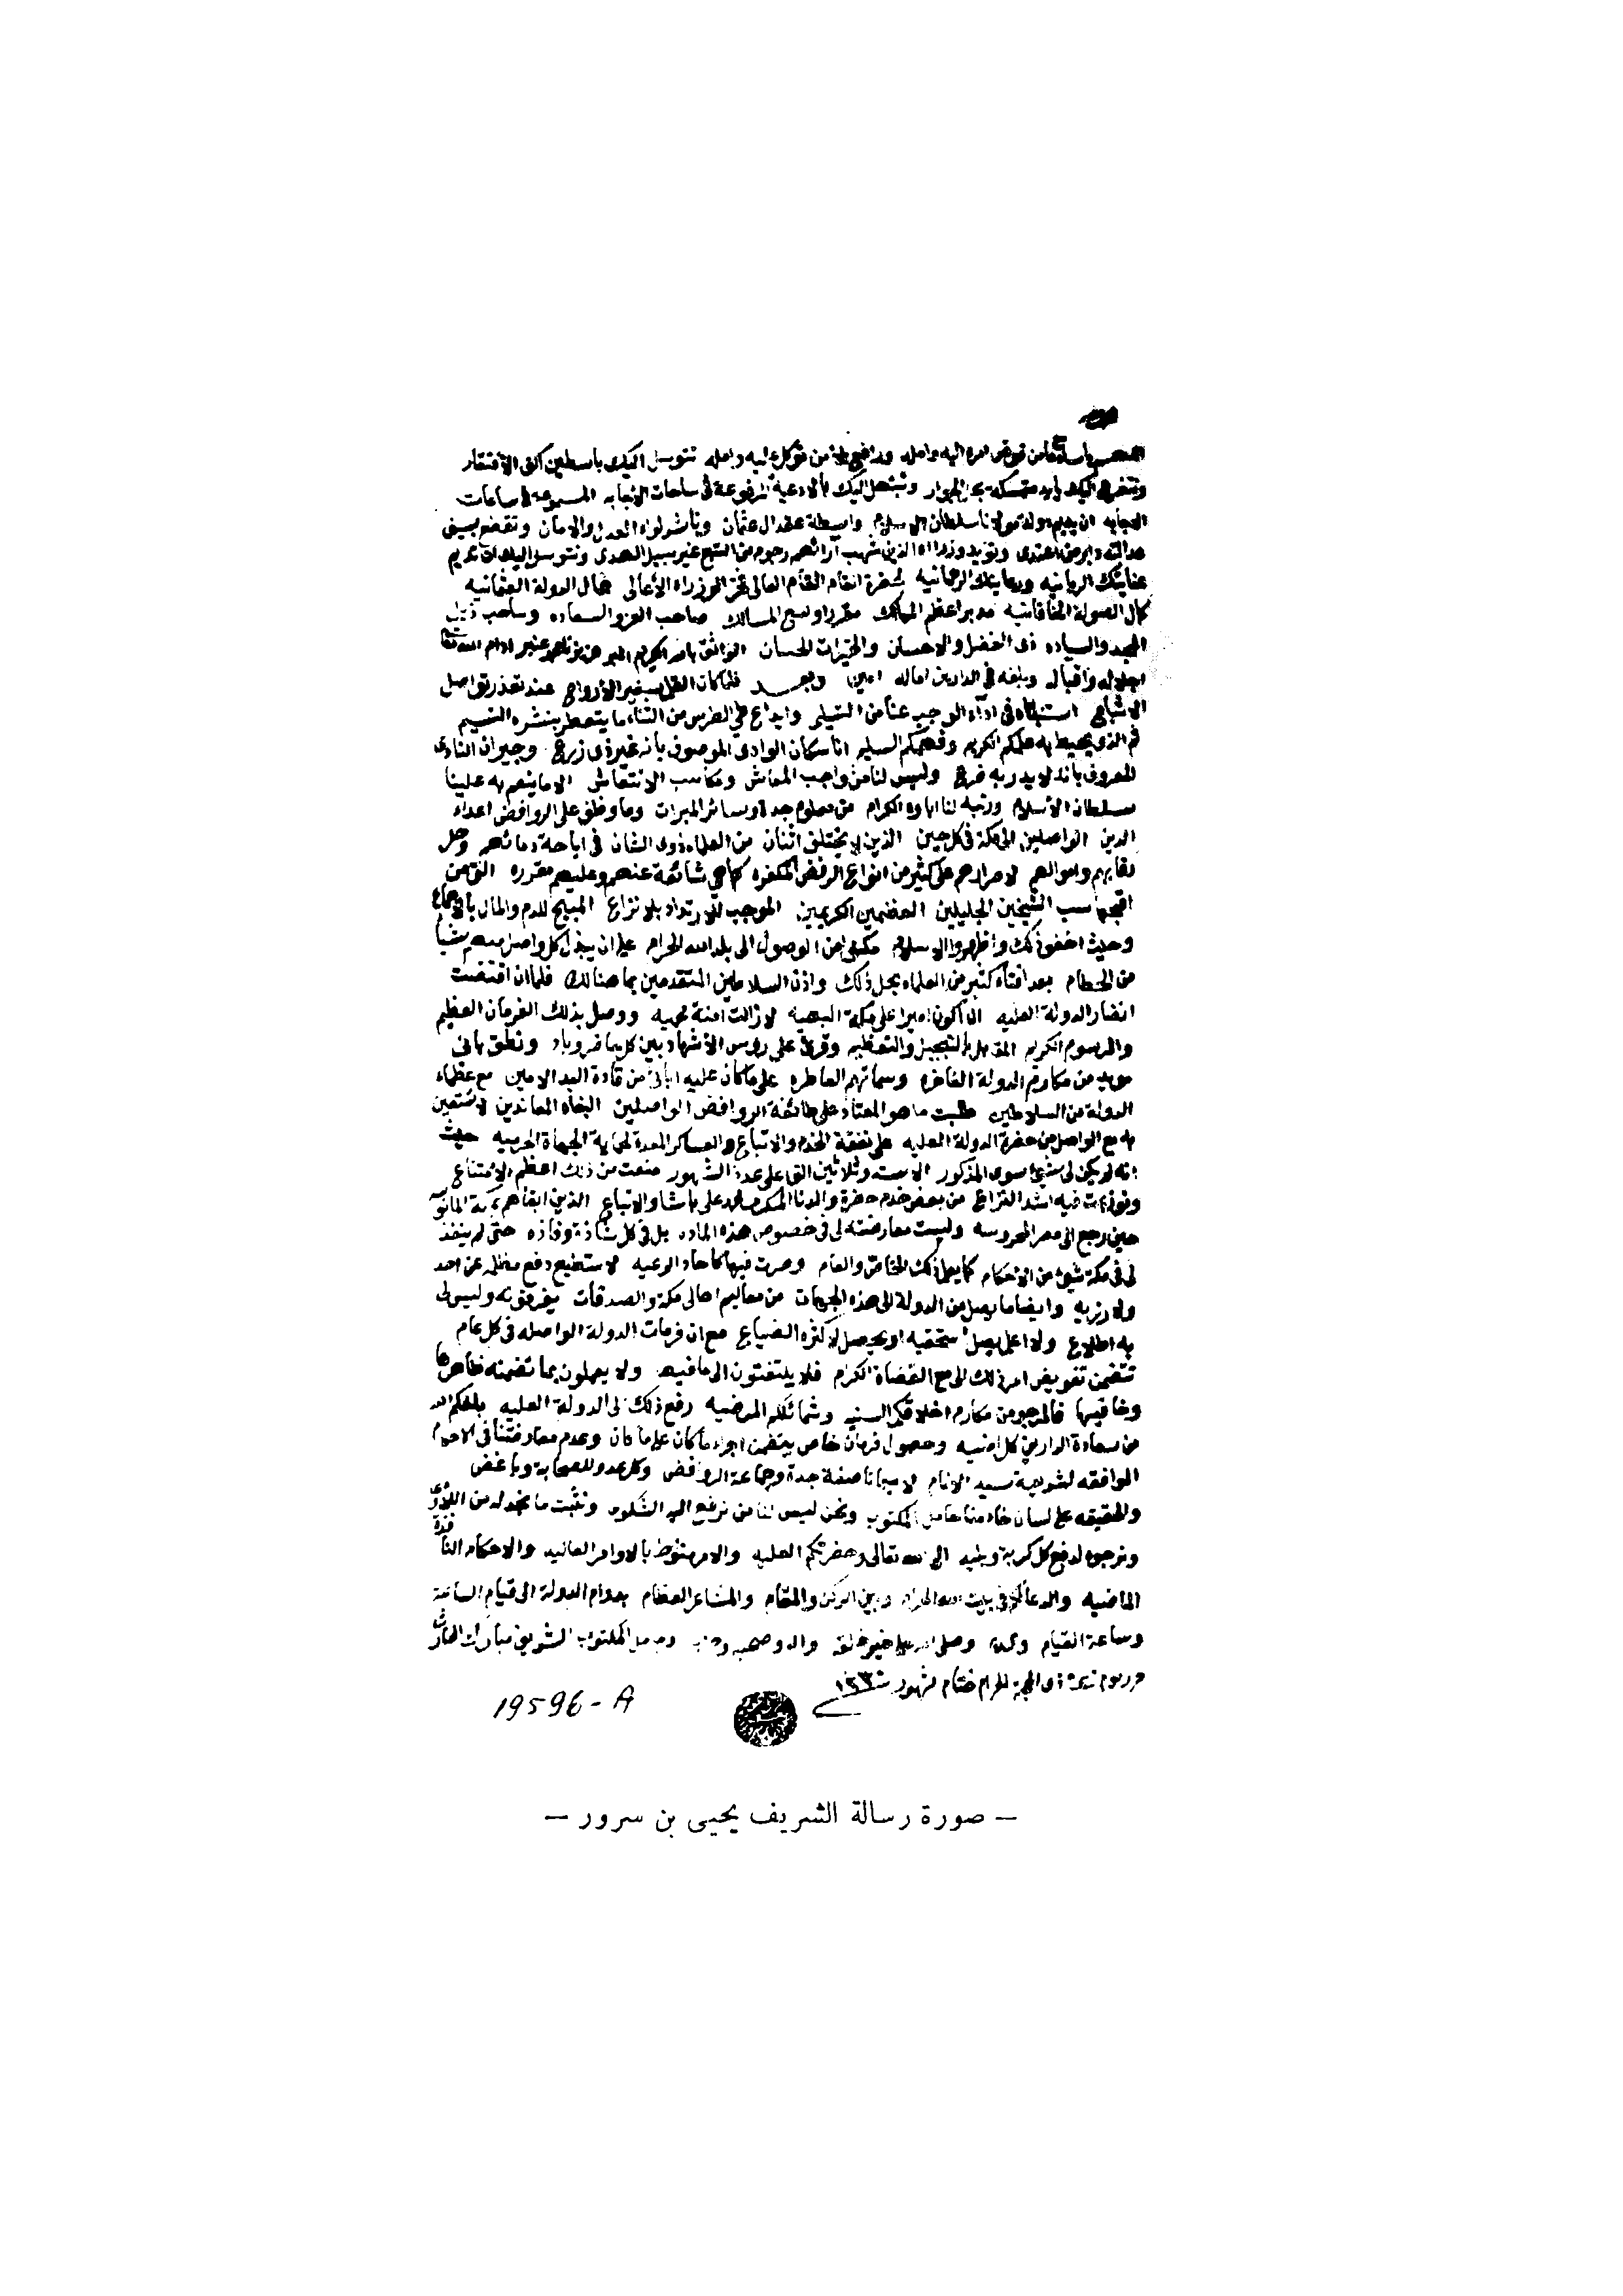 اللهم يا سامعا من فوض امره اليه وامله من توكل عليه وامله نتوسل اليك باسطين اكف الافتقار
ونتضرع اليك متمسكة الجوار ونبتهل اليك بالادعية المرفوعة في ساحات الانجابه المسموعة في ساعات
الاجابه ان يديم دولة مولانا سلطان الاسلام واسطة عقد ال عثمان وناشر لواء العدل والامان وتقطع بسيف
عدالته دابر من اعتدى وتؤيد وزراءه الذين شهب آرائهم رجوم من اتبع غير سبيل الهدى ونتوسل اليك ان تديم
عنايتك الربانيه ورعايتك الرحمانيه لحضرة المقام العالي فخر الوزراء الأعالي جمال الدولة العثمانيه
كمال الصولة الخاقانيه مدبر اعظم الممالك مقرر اوسع المسالك صاحب العز والسعاده وساحب ذيل
المجد والسياده ذي الفضل والاحسان والخيرات الحسان الواثق بالله الكريم ادام الله تعالى
اجلاله واقباله وبلغه في الدارين اماله امين وبعد فلما كان القلم سفير الأرواح عند تعذر تواصل
الاشباح استنبناه في اداء الواجب عنا من التسليم وايداع طي الطرس من الثناء ما يتعطر بنشره النسيم
ثم الذي يحيط به علمكم الكريم وفهمكم السليم انا سكان الوادي الموصوف بأنه غير ذي زرع وجيران النادي
المعروف بانه لا يدر به ضرع وليس لنا من واجب المعاش ومكاسب الانتعاش الا ما ينعم به علينا
سلطان الأسلام ورتبه لنا اباوه الكرام من معلوم جدة وسائر المبرات وما وظف على الروافض اعداء
الدين الواصلين الى مكة في كل حين الذين لا يختلف اثنان من العلماء ذوي الشان في اباحة دمائهم وحل
رقابهم واموالهم لاصرارهم على كثير من انواع الرفض المكفره كما هي شائعة عنهم وعليهم مقرره التي من
اقبحها سب الشيخين الجليلين العظيمين الكريمين الموجب للارتداد بلا نزاع المبيح للدم والمال بالاجماع
وحيث اخفوا ذلك واظهروا الاسلام مكنوا من الوصول الى بلد الله الحرام على ان يبذل كل واصل منهم شيأ
من الحطام بعد افتاء كثير من العلماء بحل ذلك واذن السلاطين المتقدمين بما هنالك فلما ان اقتضت
انظار الدولة العليه ان أكون اميرا على مكة البهيه لا زالت امنة محميه ووصل بذلك الفرمان العظيم
والمرسوم الكريم المقابل بالتبجيل والتعظيم وقرئ على روس الأشهاد بين كل حاضر وباد ونطق باني
مؤيد من مكارم الدولة الفاخره وسماتهم العاطره على ما كان عليه ابائي من قادة البلد الامين مع عظماء
الدولة من السلاطين طلبت ما هو المعتاد على طائفة الروافض الواصلين البغاه المعاندين لاستعين
به مع الواصل من حضرة الدولة العليه على نفقة الخدم والاتباع والعساكر المعدة لحماية الجهاة الحرميه حيث
انه لم يكن لي شيئ سوى المذكور الا سته وثلاثين الف على عدة الشهور منعت من ذلك اعظم الامتناع
ونوزعت فيه اشد النزاع من بعض خدم حضرة والدنا المكرم محمد علي باشا والاتباع الذين ابقاهم بمكة المانوسه
حين رجع الى مصر المحروسه وليست معارضته لي في خصوص هذه الماده بل في كل شاذة وفاذه حتى لم ينفذ
لي في مكة شيئ من الأحكام كما يعلم ذلك الخاص والعام وصرت فيها كاحاد الرعيه لا ستطيع دفع مظلمه عن احد
ولا رزيه وايضا ما يصل من الدولة الى هذه الجهات من معاليم اهالي مكة والصدقات يفرقونه وليس لي
به اطلاع ولا اعلم يصل مستحقيه او يحصل لاكثره الضياع مع ان فرمانات الدولة الواصله في كل عام
تتضمن تفويض امر ذلك الي مع القضاة الكرام فلا يلتفتون الى ما فيه ولا يعملون بما تضمنه ظاهرها
وخافيها فالمرجو من مكارم اخلاقكم السنيه وشمائلكم المرضيه رفع ذلك الى الدولة العليه بلغكم الله
من سعادة الدارين كل امنيه وحصول فرمان خاص يتضمن اجراء ما كان على ما كان وعدم معارضتنا في الاحكام
الموافقه لشريعة سيد الانام لا سيما ناصفة جدة وجماعة الروافض وكل عدو للصحابة وباغض
والحقيقه على لسان خادمنا حامل المكتوب ونحن ليس لنا من نرفع اليه الشكوى ونثبت ما نجد له من البلوى
ونرجوه لدفع كل كربة وبليه الى الله تعالى وحضرتكم العليه والامر منوط بالاوامر العاليه والاحكام النافذة
الماضيه والدعا لكم في بيت الله الحرام وبين الركن والمقام والمشاعر العظام بدوام الدولة الى قيام الساعة
وساعة القيام وصلى الله على خير خلقه واله وصحبه وحامل المكتوب الشريف مبارك الحارث
حرر يوم ذي الحجة الحرام ختام شهور سنة ١٢٣٠
19596 - A
– صورة رسالة الشريف يحيى بن سرور –